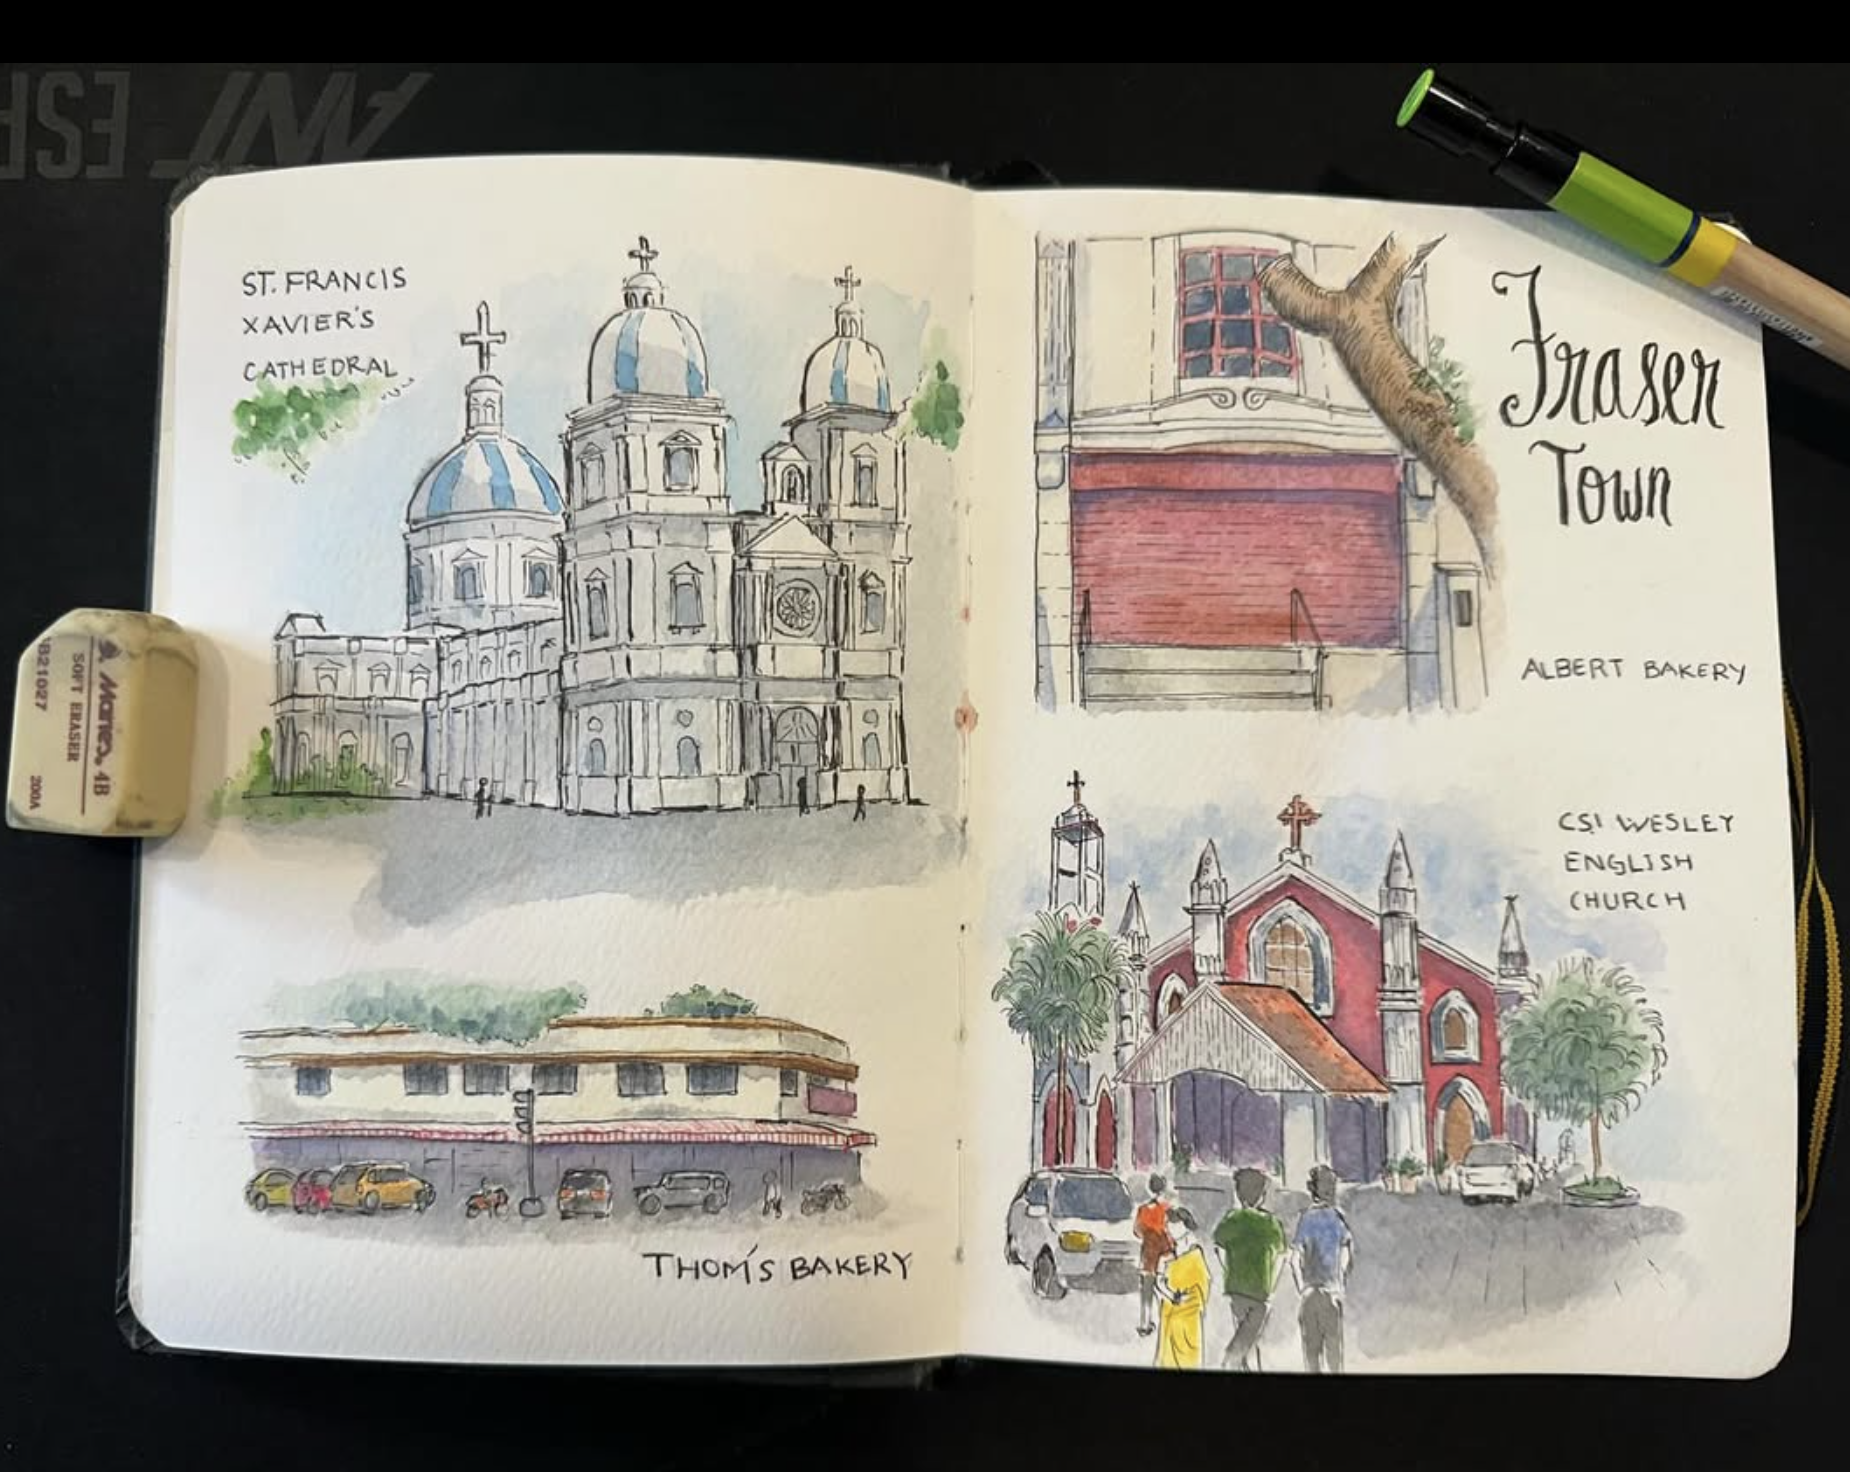 ST. FRANCIS
XAVIER'S
CATHEDRAL
THOM'S BAKERY
Fraser
Town
ALBERT BAKERY
CSI WESLEY
ENGLISH
CHURCH
Marco 4B
SOFT ERASER
B21027
200A